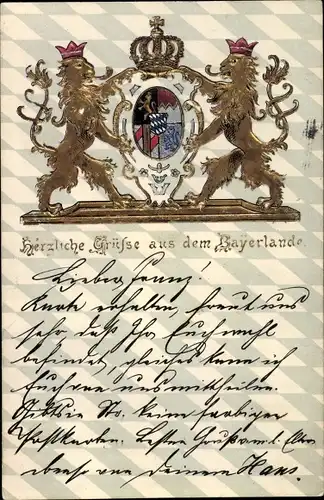 Herzliche Grüsse aus dem Bayerlande.
Lieber Franz!
Karte erhalten, freut uns
sehr daß Ihr Euch wohl
befindet, gleiches kann ich
Euch von uns mitteilen.
Gibt's in keine farbigen
Postkarten. Besten Gruß a. d. Eltern
ebenso von deinem Hans.